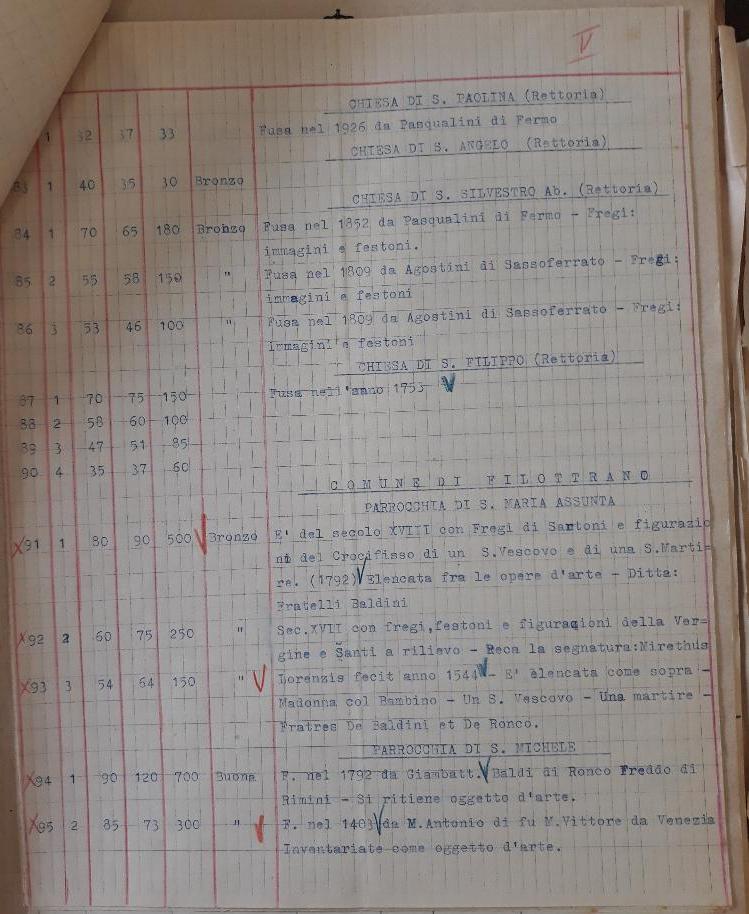 V
CHIESA DI S. PAOLINA (Rettoria)
1 32 37 33 Fusa nel 1926 da Pasqualini di Fermo
CHIESA DI S. ANGELO (Rettoria)
83 1 40 35 30 Bronzo
CHIESA DI S. SILVESTRO Ab. (Rettoria)
84 1 70 65 180 Bronzo Fusa nel 1852 da Pasqualini di Fermo - Fregi:
immagini e festoni.
85 2 55 58 150 " Fusa nel 1809 da Agostini di Sassoferrato - Fregi:
immagini e festoni
86 3 53 46 100 " Fusa nel 1809 da Agostini di Sassoferrato - Fregi:
immagini e festoni
CHIESA DI S. FILIPPO (Rettoria)
87 1 70 75 150 Fusa nell'anno 1753 V
88 2 58 60 100
89 3 47 51 85
90 4 35 37 60
COMUNE DI FILOTTRANO
PARROCCHIA DI S. MARIA ASSUNTA
X91 1 80 90 500 V Bronzo E' del secolo XVIII con Fregi di Sartoni e figurazio
ni del Crocifisso di un S.Vescovo e di una S.Marti=
re. (1792) V Elencata fra le opere d'arte - Ditta:
Fratelli Baldini
X92 2 60 75 250 " Sec.XVII con fregi,festoni e figuragioni della Ver=
gine e Santi a rilievo - Reca la segnatura:Mirethus
X93 3 54 64 150 " V Lorenzis fecit anno 1544 V - E' elencata come sopra -
Madonna col Bambino - Un S. Vescovo - Una martire -
Fratres De Baldini et De Ronco.
PARROCCHIA DI S. MICHELE
X94 1 90 120 700 Buona F. nel 1792 da Giambatt. V Baldi di Ronco Freddo di
Rimini - Si ritiene oggetto d'arte.
X95 2 85 73 300 " V F. nel 1403 V da M.Antonio di fu M.Vittore da Venezia
Inventariate come oggetto d'arte.